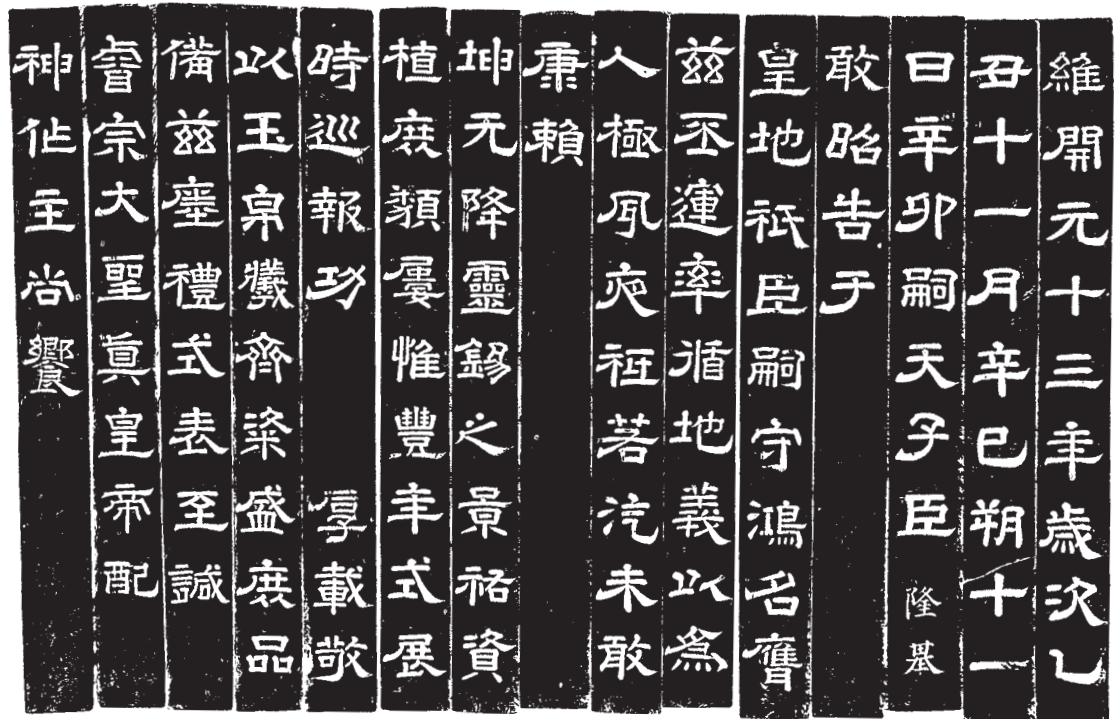 維開元十三年歲次乙
丑十一月辛巳朔十一
日辛卯嗣天子臣隆基
敢昭告于
皇地祇臣嗣守鴻名膺
茲丕運率循地義以為
人極夙夜祗若汔未敢
康賴
坤元降靈錫之景祐資
植庶類屢惟豐年式展
時巡報功 厚載敬
以玉帛犧齊粢盛庶品
備茲瘞禮式表至誠
睿宗大聖眞皇帝配
神作主尚饗